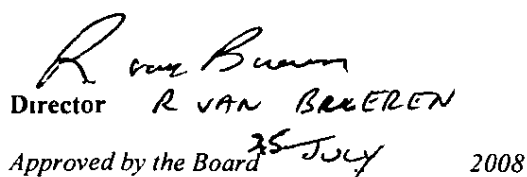 R van
Director R VAN BREEREN
Approved by the Board 25 JULY 2008